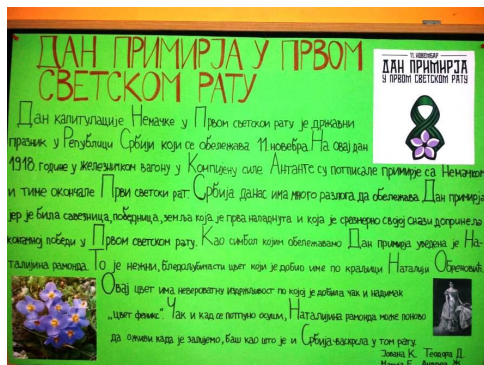 ДАН ПРИМИРЈА У ПРВОМ
СВЕТСКОМ РАТУ
11. НОВЕМБАР
ДАН ПРИМИРЈА
У ПРВОМ СВЕТСКОМ РАТУ
Дан капитулације Немачке у Првом светском рату је државни
празник у Републици Србији који се обележава 11. новебра. На овај дан
1918. године у железничком вагону у Компијену силе Антанте су потписале примирје са Немачком
и тиме окончале Први светски рат. Србија данас има много разлога да обележава Дан примирја
јер је била савезница, победница, земља која је прва нападнута и која је сразмерно својој снази допринела
коначној победи у Првом светском рату. Као симбол којим обележавамо Дан примирја уведена је На-
талијина рамонда. То је нежни, бледољубичасти цвет који је добио име по краљици Наталији Обреновић.
Овај цвет има невероватну издржљивост по којој је добила чак и надимак
„цвет феникс". Чак и кад се потпуно осуши, Наталијина рамонда може поново
да оживи када је залијемо, баш као што је и Србија васкрсла у том рату.
Јована К. Теодора Д.